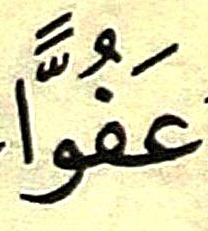 عَفُوًّا